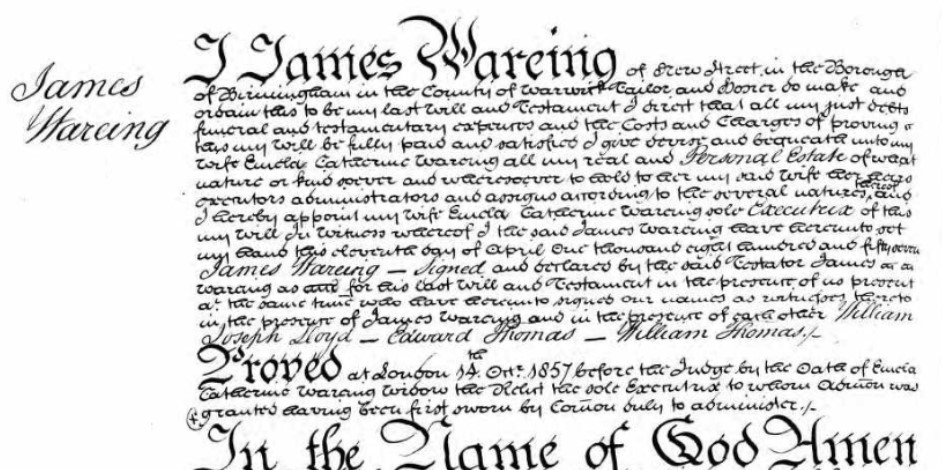 James
Wareing
I James Wareing of Drew Street in the Borough
of Birmingham in the County of Warwick Tailor and Hosier do make and
ordain this to be my last Will and Testament I direct that all my just debts
funeral and testamentary expences and the Costs and Charges of proving
this my will be fully paid and satisfied I give devise and bequeath unto my
wife Catherine Wareing all my real and Personal Estate of what
nature or kind soever and wheresoever to hold to her my said wife her heirs
executors administrators and assigns according to the several natures thereof and
I hereby appoint my wife Catherine Wareing sole Executrix of this
my will In Witness whereof I the said James Wareing have hereunto set
my hand this eleventh day of April One thousand eight hundred and fifty seven
James Wareing – Signed and declared by the said Testator James
Wareing as and for his last Will and Testament in the presence of us present
at the same time who have hereunto signed our names as witnesses thereto
in the presence of James Wareing and in the presence of each other William
Joseph Lloyd – Edward Thomas – William Thomas ./-
Proved at London 14th Octr. 1857 before the Judge by the Oath of
Catherine Wareing Widow the Relict the sole Executrix to whom Admōn was
granted having been first sworn by Comōn duly to administer ./-
In the Name of God Amen